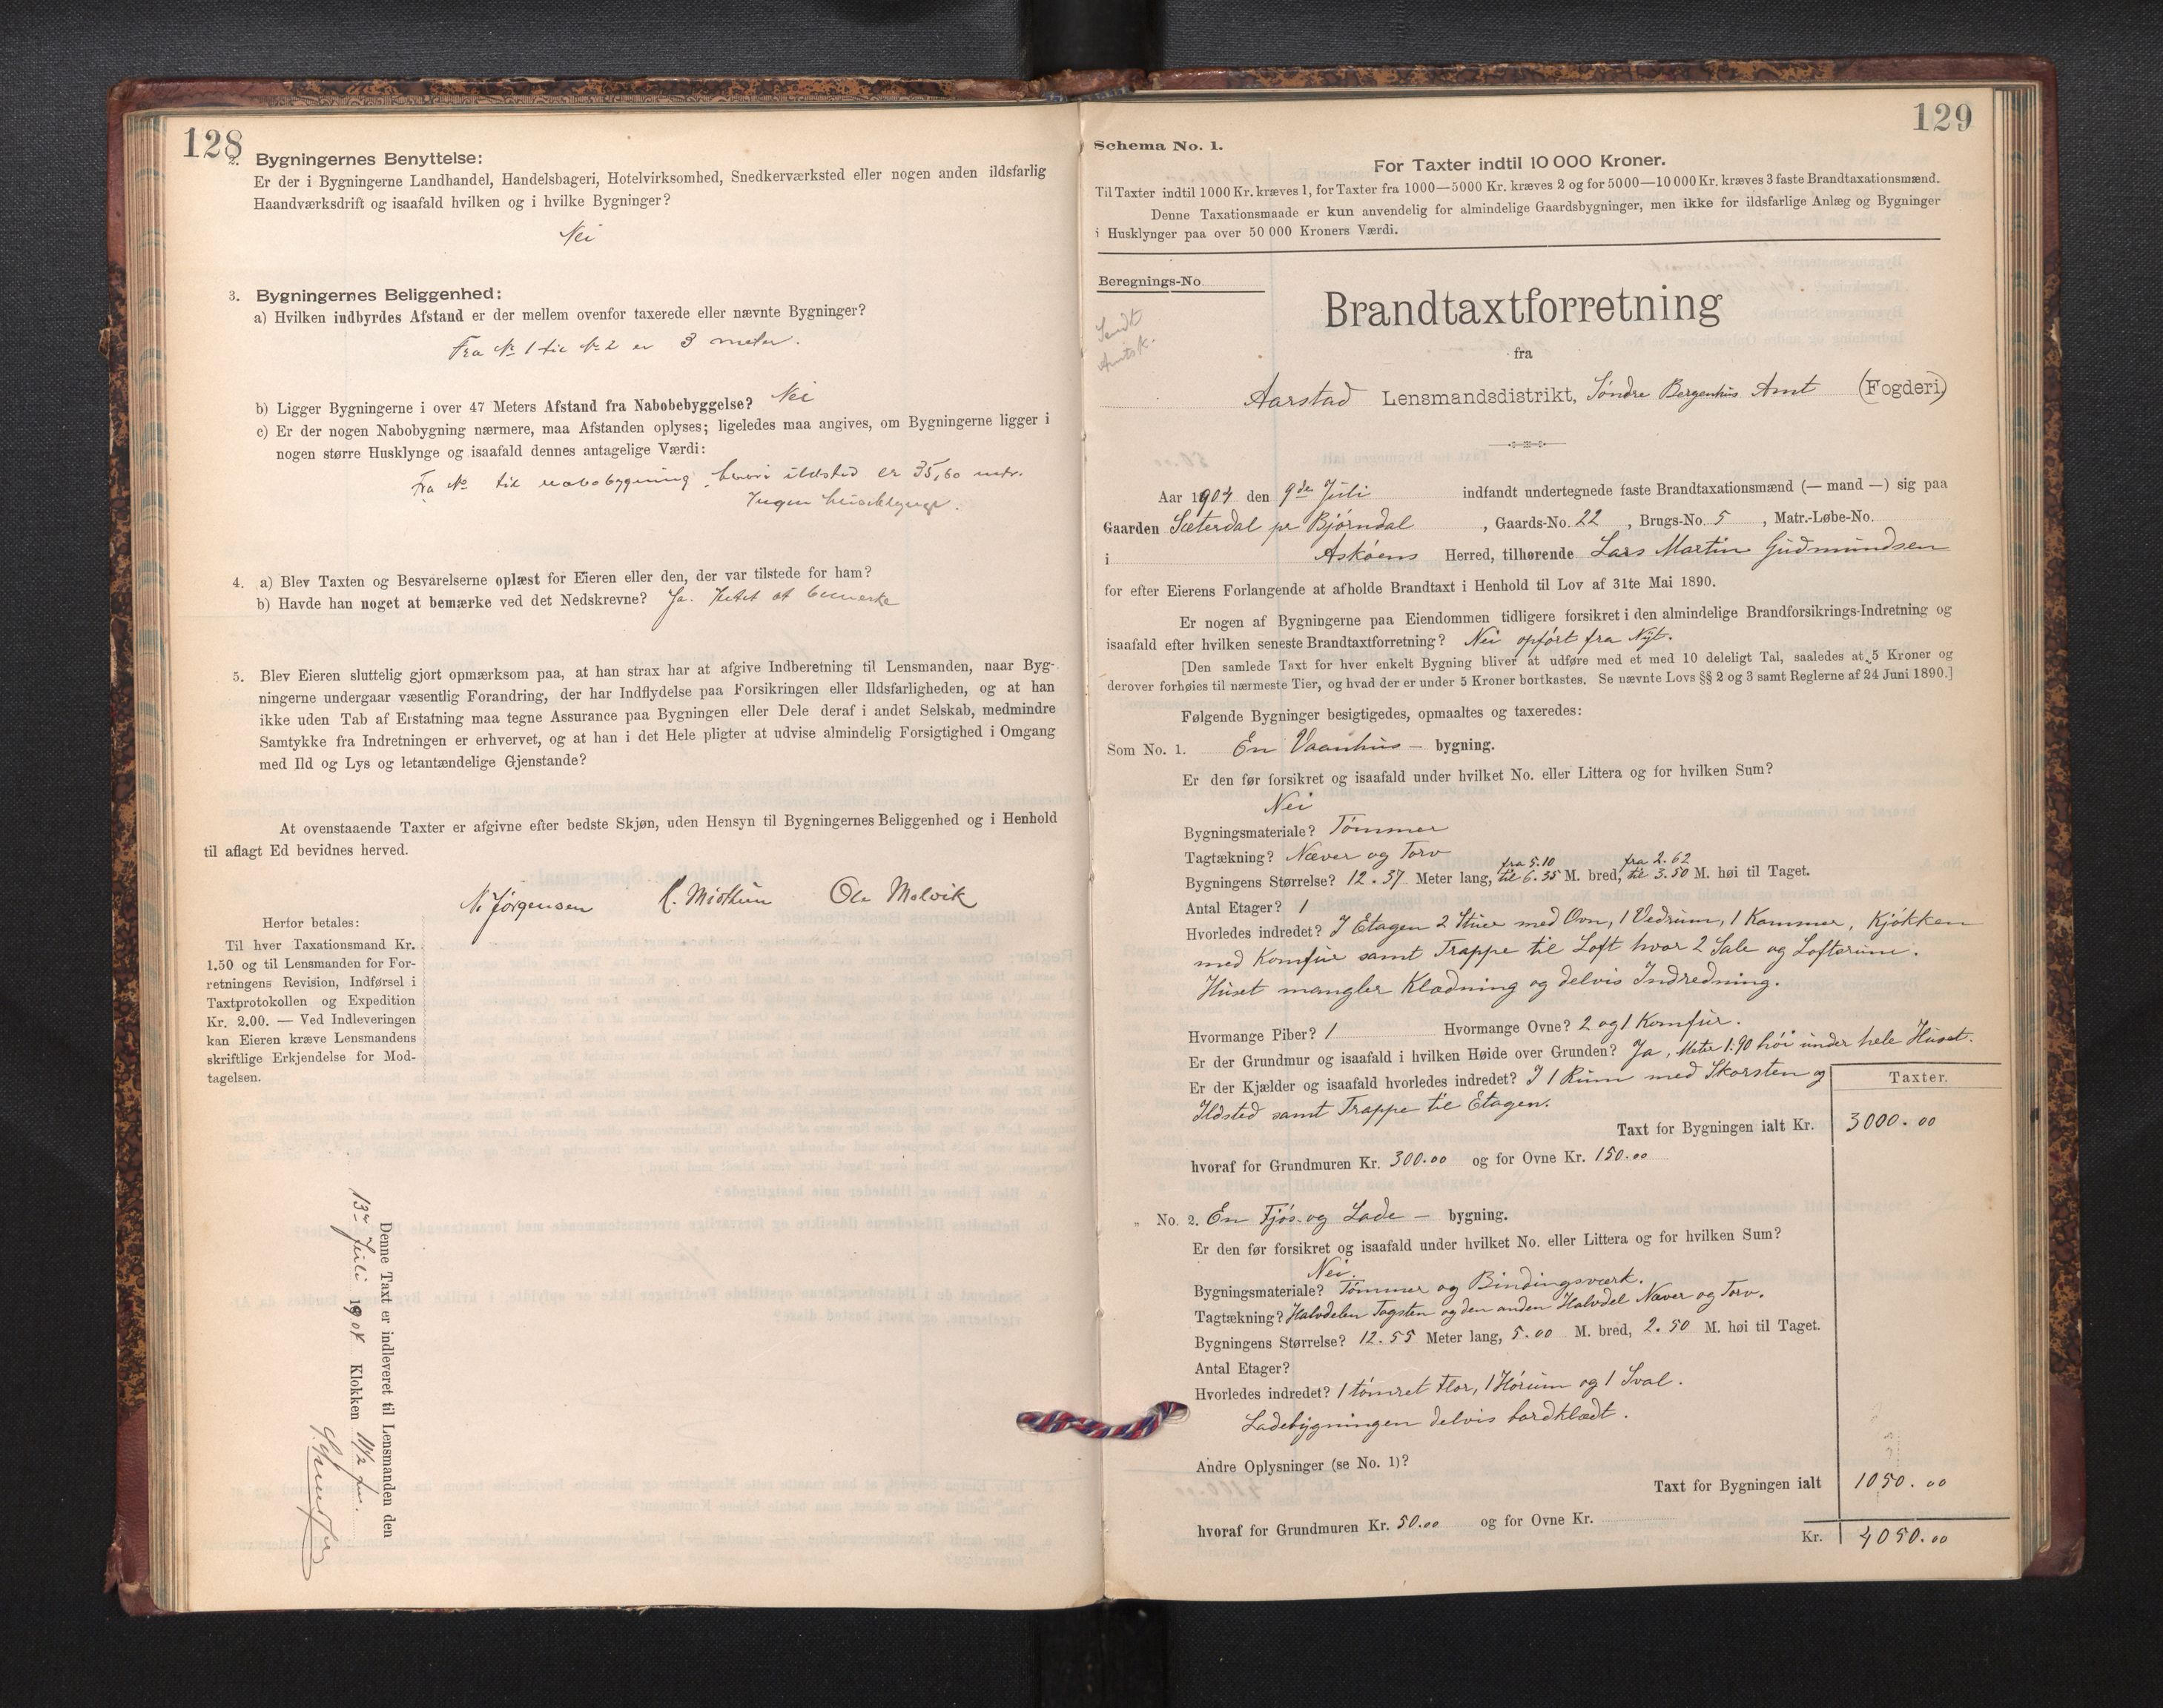 128
2. Bygningernes Benyttelse:
Er der i Bygningerne Landhandel, Handelsbageri, Hotelvirksomhed, Snedkerværksted eller nogen anden ildsfarlig
Haandværksdrift og isaafald hvilken og i hvilke Bygninger?
Nei
3. Bygningernes Beliggenhed:
a) Hvilken indbyrdes Afstand er der mellem ovenfor taxerede eller nævnte Bygninger?
Fra No 1 til No 2 er 3 meter.
b) Ligger Bygningerne i over 47 Meters Afstand fra Nabobebyggelse? Nei
c) Er der nogen Nabobygning nærmere, maa Afstanden oplyses; ligeledes maa angives, om Bygningerne ligger i
nogen større Husklynge og isaafald dennes antagelige Værdi:
Fra No til nabobygning, hvori ildsted er 35,60 mtr.
Ingen husklynge.
4. a) Blev Taxten og Besvarelserne oplæst for Eieren eller den, der var tilstede for ham?
b) Havde han noget at bemærke ved det Nedskrevne? Ja. Intet at bemerke
5. Blev Eieren sluttelig gjort opmærksom paa, at han strax har at afgive Indberetning til Lensmanden, naar Byg-
ningerne undergaar væsentlig Forandring, der har Indflydelse paa Forsikringen eller Ildsfarligheden, og at han
ikke uden Tab af Erstatning maa tegne Assurance paa Bygningen eller Dele deraf i andet Selskab, medmindre
Samtykke fra Indretningen er erhvervet, og at han i det Hele pligter at udvise almindelig Forsigtighed i Omgang
med Ild og Lys og letantændelige Gjenstande?
At ovenstaaende Taxter er afgivne efter bedste Skjøn, uden Hensyn til Bygningernes Beliggenhed og i Henhold
til aflagt Ed bevidnes herved.
N. Jørgensen Ole Melvik
Herfor betales:
Til hver Taxationsmand Kr.
1.50 og til Lensmanden for For-
retningens Revision, Indførsel i
Taxtprotokollen og Expedition
Kr. 2.00. — Ved Indleveringen
kan Eieren kræve Lensmandens
skriftlige Erkjendelse for Mod-
tagelsen.
Denne Taxt er indleveret til Lensmanden den
13de Juli 1904 Klokken 11 1/2 fm.
129
Schema No. 1.
For Taxter indtil 10 000 Kroner.
Til Taxter indtil 1000 Kr. kræves 1, for Taxter fra 1000—5000 Kr. kræves 2 og for 5000—10 000 Kr. kræves 3 faste Brandtaxationsmænd.
Denne Taxationsmaade er kun anvendelig for almindelige Gaardsbygninger, men ikke for ildsfarlige Anlæg og Bygninger
i Husklynger paa over 50 000 Kroners Værdi.
Beregnings-No.
Sendt
Amtsk.
Brandtaxtforretning
fra
Aarstad Lensmandsdistrikt, Søndre Bergenhus Amt (Fogderi)
Aar 1904 den 9de Juli indfandt undertegnede faste Brandtaxationsmænd (— mand —) sig paa
Gaarden Sæterdal pr Bjørndal, Gaards-No. 22, Brugs-No. 5, Matr.-Løbe-No.
i Askøens Herred, tilhørende Lars Martin Gudmundsen
for efter Eierens Forlangende at afholde Brandtaxt i Henhold til Lov af 31te Mai 1890.
Er nogen af Bygningerne paa Eiendommen tidligere forsikret i den almindelige Brandforsikrings-Indretning og
isaafald efter hvilken seneste Brandtaxtforretning? Nei opført fra Nyt.
[Den samlede Taxt for hver enkelt Bygning bliver at udføre med et med 10 deleligt Tal, saaledes at 5 Kroner og
derover forhøies til nærmeste Tier, og hvad der er under 5 Kroner bortkastes. Se nævnte Lovs §§ 2 og 3 samt Reglerne af 24 Juni 1890.]
Følgende Bygninger besigtigedes, opmaaltes og taxeredes:
Som No. 1. En Vaanhus — bygning.
Er den før forsikret og isaafald under hvilket No. eller Littera og for hvilken Sum?
Nei
Bygningsmateriale? Tømmer
Tagtækning? Næver og Torv
Bygningens Størrelse? 12.37 Meter lang, fra 5.10 til 6.35 M. bred, fra 2.62 til 3.50 M. høi til Taget.
Antal Etager? 1
Hvorledes indredet? I Etagen 2 Stuer med Ovn, 1 Vedrum, 1 Kammer, Kjøkken
med Komfur samt Trappe til Loft hvor 2 Sale og Lofterum.
Huset mangler Klædning og delvis Indredning.
Hvormange Piber? 1 Hvormange Ovne? 2 og 1 Komfur.
Er der Grundmur og isaafald i hvilken Høide over Grunden? Ja, Meter 1.90 høi under hele Huset.
Er der Kjælder og isaafald hvorledes indredet? I 1 Rum med Skorsten og
Ildsted samt Trappe til Etagen.
Taxter.
Taxt for Bygningen ialt Kr. 3000.00
hvoraf for Grundmuren Kr. 300.00 og for Ovne Kr. 150.00
„ No. 2. En Fjøs og Lade — bygning.
Er den før forsikret og isaafald under hvilket No. eller Littera og for hvilken Sum?
Nei.
Bygningsmateriale? Tømmer og Bindingsværk.
Tagtækning? Halvdelen Tagsten og den anden Halvdel Næver og Torv.
Bygningens Størrelse? 12.55 Meter lang, 5.00 M. bred, 2.50 M. høi til Taget.
Antal Etager?
Hvorledes indredet? 1 tømret Flor, 1 Hørum og 1 Sval.
Ladebygningen delvis bordklædt.
Andre Oplysninger (se No. 1)?
Taxt for Bygningen ialt 1050.00
hvoraf for Grundmuren Kr. 50.00 og for Ovne Kr.
Kr. 4050.00